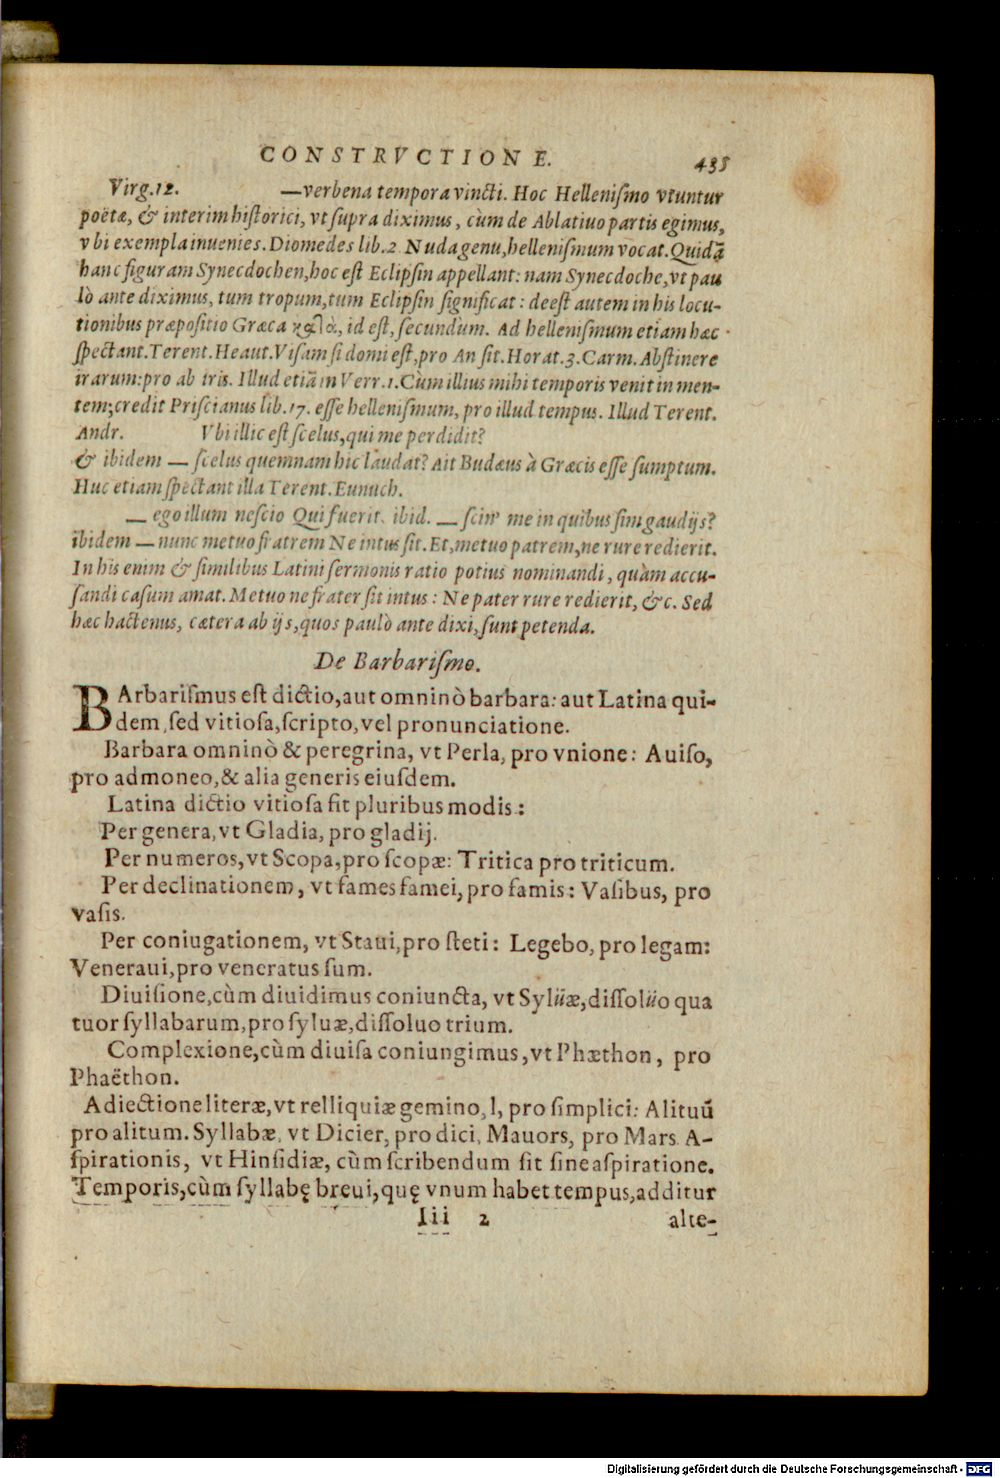 CONSTRVCTIONE. 435
Virg.12. —verbena tempora vincti. Hoc Helleniſmo vtuntur
poëtæ, & interim hiſtorici, vt ſupra diximus, cùm de Ablatiuo partis egimus,
vbi exempla inuenies. Diomedes lib.2 Nuda genu, helleniſmum vocat. Quidã
hanc figuram Synecdochen, hoc eſt Eclipſin appellant: nam Synecdoche, vt pau
lò ante diximus, tum tropum, tum Eclipſin ſignificat: deeſt autem in his locu-
tionibus præpoſitio Græca κατὰ, id eſt, ſecundùm. Ad helleniſmum etiam hæc
ſpectant. Terent. Heaut. Viſam ſi domi eſt, pro An ſit. Horat. 3. Carm. Abſtinere
irarum: pro ab iris. Illud etiã in Verr. 1. Cum illius mihi temporis venit in men-
tem; credit Priſcianus lib. 17. eſſe helleniſmum, pro illud tempus. Illud Terent.
Andr. Vbi illic eſt ſcelus, qui me perdidit?
& ibidem — ſcelus quemnam hic laudat? Ait Budæus à Græcis eſſe ſumptum.
Huc etiam ſpectant illa Terent. Eunuch.
— ego illum neſcio Qui fuerit. ibid. — ſcin' me in quibus ſim gaudijs?
ibidem — nunc metuo fratrem Ne intus ſit. Et, metuo patrem, ne rure redierit.
In his enim & ſimilibus Latini ſermonis ratio potius nominandi, quàm accu-
ſandi caſum amat. Metuo ne frater ſit intus: Ne pater rure redierit, &c. Sed
hæc hactenus, cætera ab ijs, quos paulò ante dixi, ſunt petenda.
De Barbariſmo.
BArbariſmus eſt dictio, aut omninò barbara: aut Latina qui-
dem, ſed vitioſa, ſcripto, vel pronunciatione.
Barbara omninò & peregrina, vt Perla, pro vnione: Auiſo,
pro admoneo, & alia generis eiuſdem.
Latina dictio vitioſa fit pluribus modis:
Per genera, vt Gladia, pro gladij.
Per numeros, vt Scopa, pro ſcopæ: Tritica pro triticum.
Per declinationem, vt fames famei, pro famis: Vaſibus, pro
vaſis.
Per coniugationem, vt Staui, pro ſteti: Legebo, pro legam:
Veneraui, pro veneratus ſum.
Diuiſione, cùm diuidimus coniuncta, vt Sylüæ, diſſolüo qua
tuor ſyllabarum, pro ſyluæ, diſſoluo trium.
Complexione, cùm diuiſa coniungimus, vt Phæthon, pro
Phaëthon.
Adiectione literæ, vt relliquiæ gemino, l, pro ſimplici: Alituũ
pro alitum. Syllabæ, vt Dicier, pro dici, Mauors, pro Mars. A-
ſpirationis, vt Hinſidiæ, cùm ſcribendum ſit ſine aſpiratione.
Temporis, cùm ſyllabę breui, quę vnum habet tempus, additur
Iii 2 alte-
Digitalisierung gefördert durch die Deutsche Forschungsgemeinschaft - DFG